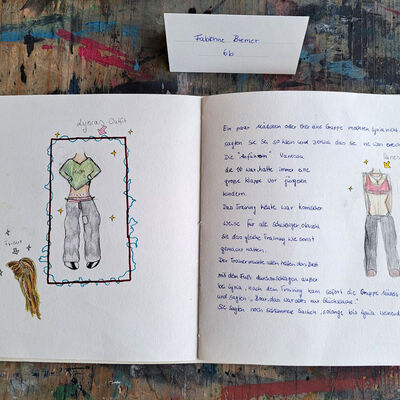 Fabienne Bremer
6b
Lyncas Outfit
Frisur
Ein paar mädchen oder eher eine Gruppe machten Lyria
sagten sie sei so klein und
Die "Anführerin" Vanessa,
die 10 war, hatte immer eine
große Klappe vor jüngeren
kindern.
Das Training heute war komischer
weise für alle schwieriger obwohl
sie das gleiche Training wie sonst
gemacht hatten.
Der Trainer machte
mit dem Fuß durchzuschlagen außer
bei Lyria, nach dem Training kam sofort die Gruppe
und sagten "Boar, das war alles nur Glückssache."
Sie sagten noch schlimmere Sachen, solange bis Lyria weinend